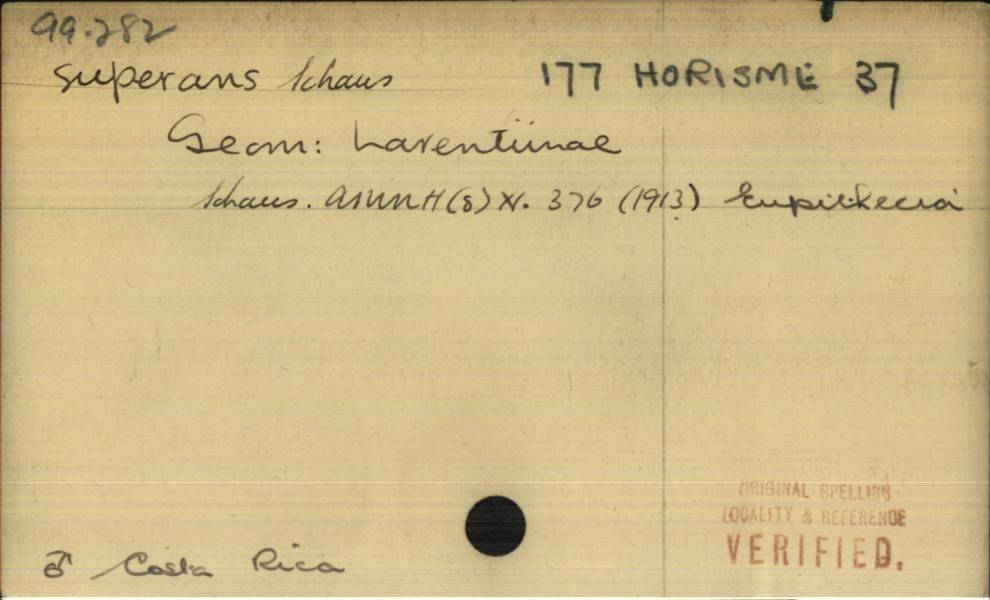 99.282
superans Schaus 177 HORISME 37
Geom: Larentiinae
Schaus. AMNH (8) XI. 376 (1913) Eupithecia
ORIGINAL SPELLING
LOCALITY & REFERENCE
VERIFIED.
♂ Costa Rica